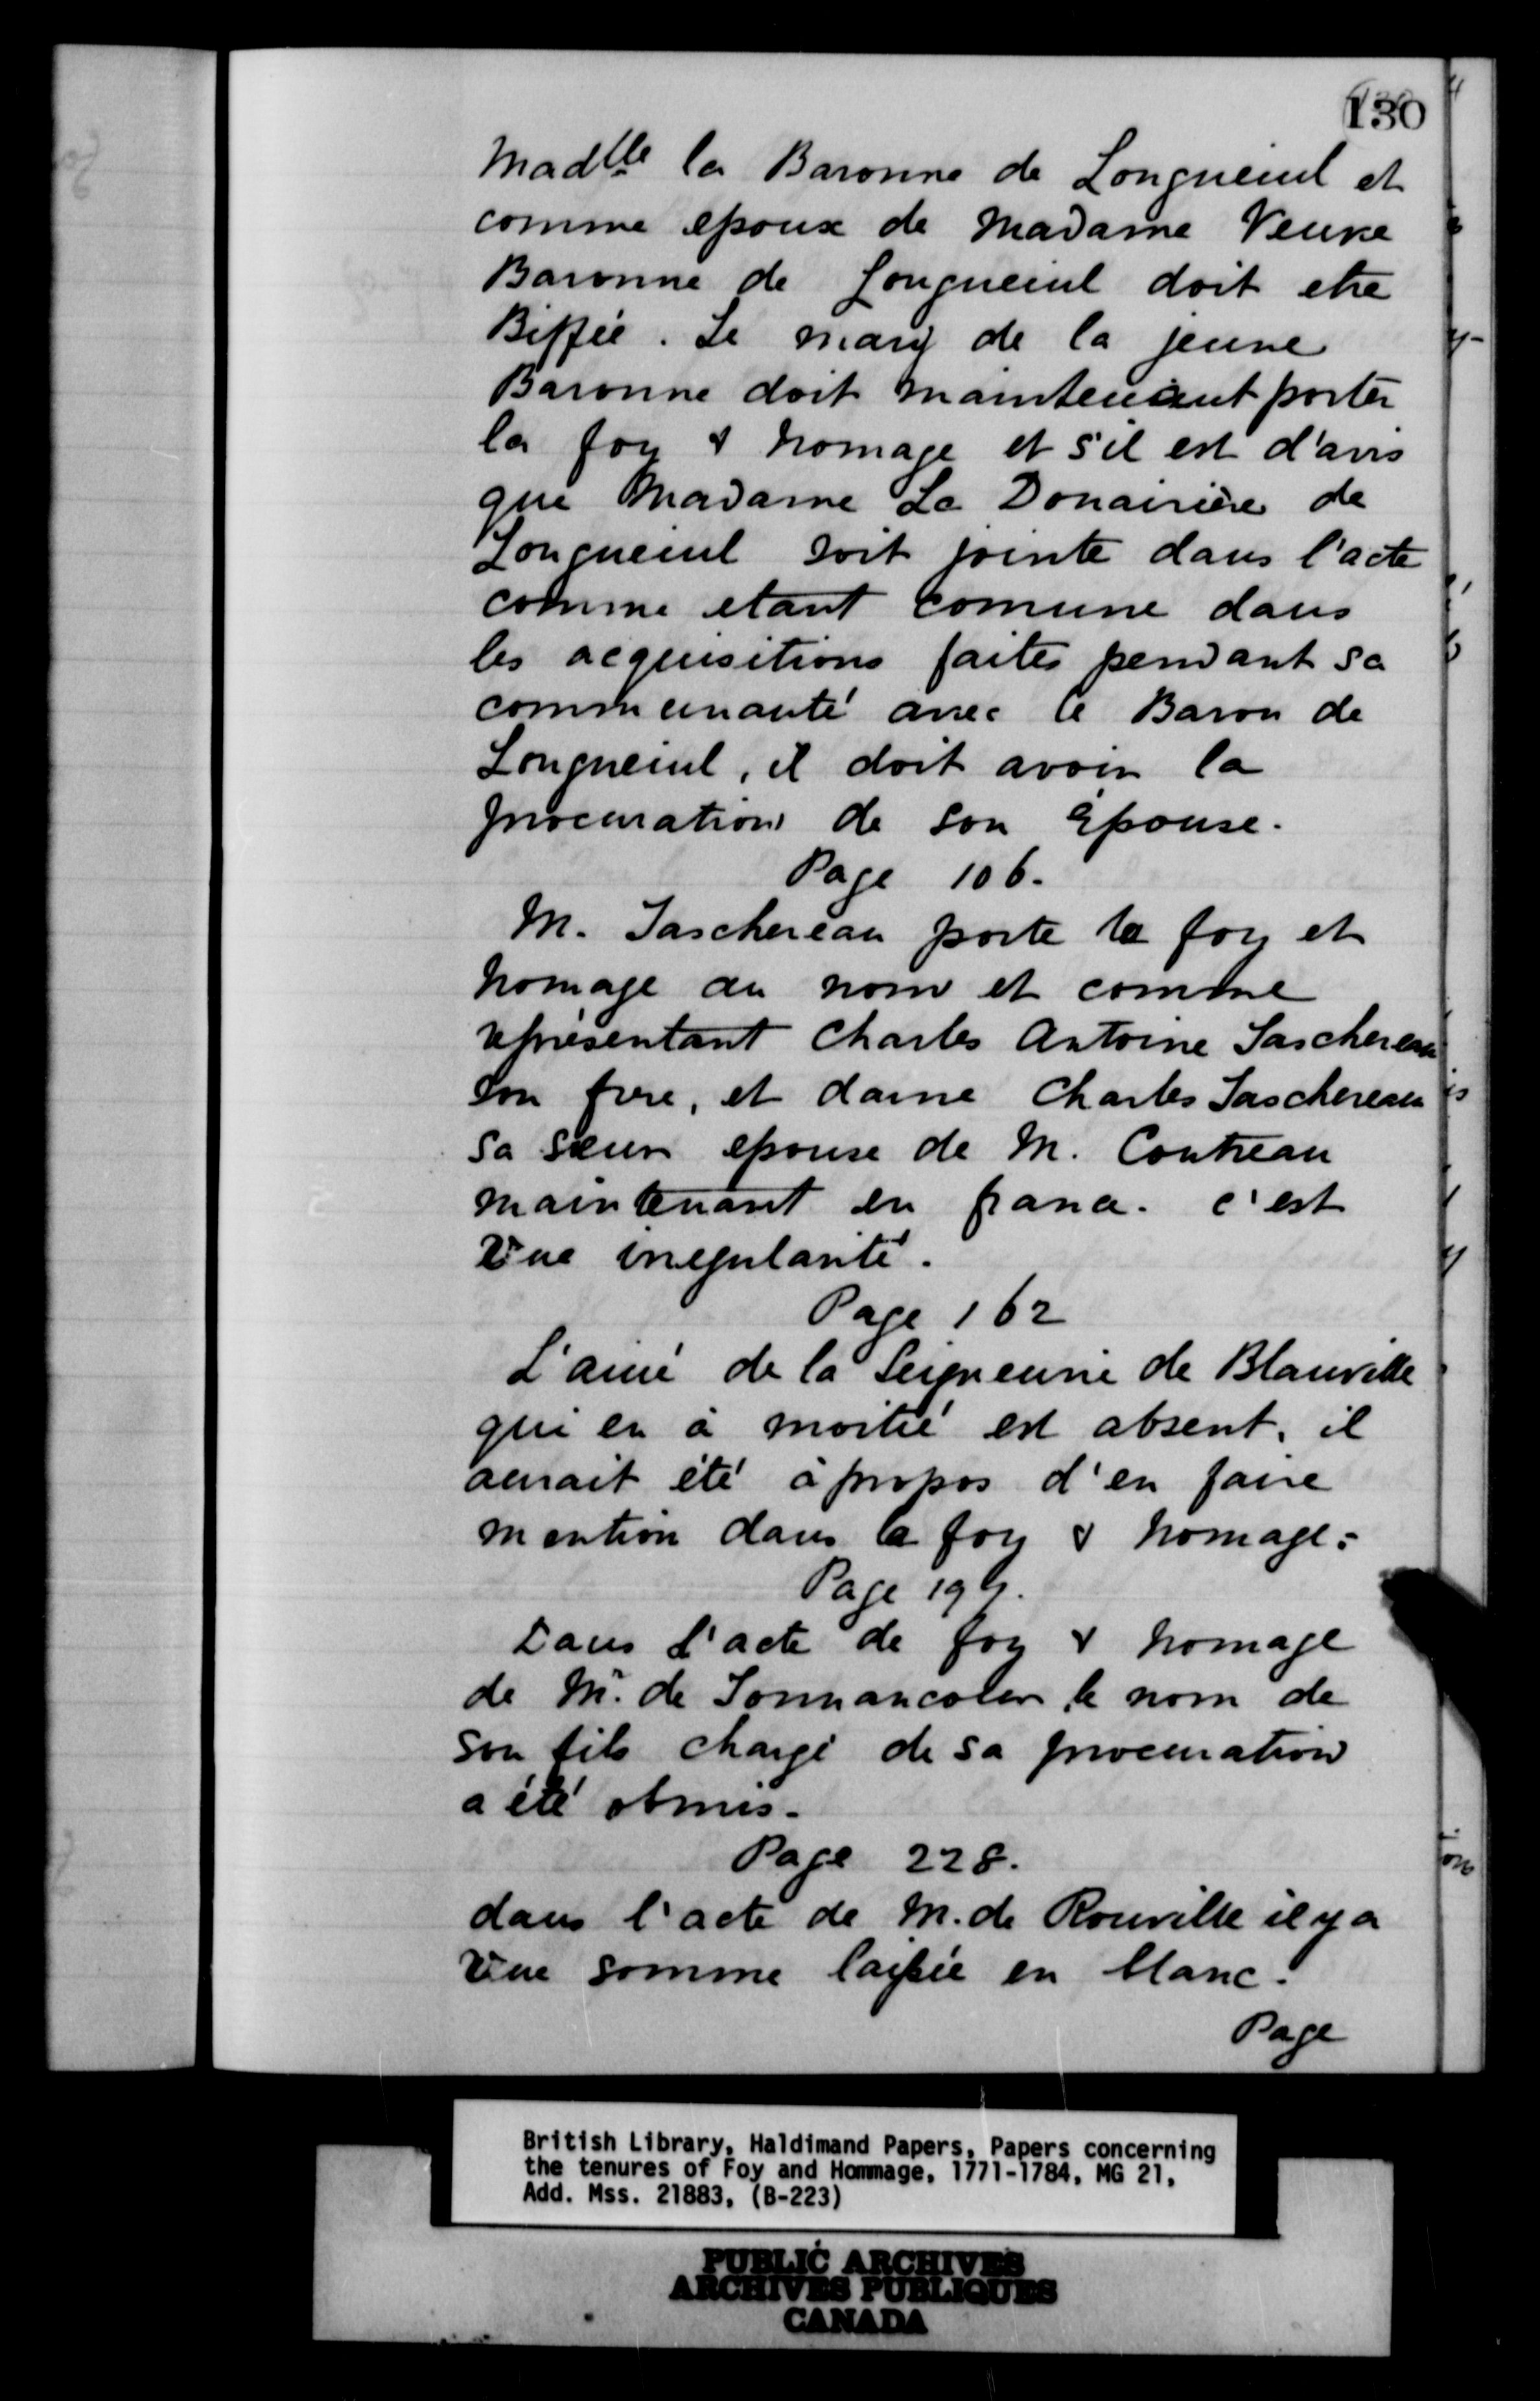 130
Madlle la Baronne de Longueuil et
comme epoux de Madame Veuve
Baronne de Longueuil doit etre
Biffée. Le mary de la jeune
Baronne doit maintenant porter
la foy & homage et s'il est d'avis
que Madame La Douairière de
Longueuil soit jointe dans l'acte
comme etant comune dans
les acquisitions faites pendant sa
communauté avec le Baron de
Longueuil, il doit avoir la
procuration de son Epouse.
Page 106.
M. Taschereau porte la foy et
homage au nom et comme
représentant Charles Antoine Taschereau
son frere, et dame Charles Taschereau
sa sœur epouse de M. Coutreau
maintenant en france. c'est
Une irregularité.
Page 162
L'ainé de la Seigneurie de Blainville
qui en à moitié est absent, il
aurait été à propos d'en faire
mention dans la foy & homage.
Page
Dans l'acte de foy & homage
de Mr. de Tonnancour le nom de
son fils chargé de sa procuration
a été obmis.
Page 228.
dans l'acte de M. de Rouville il y a
Une somme laissée en blanc.
Page
British Library, Haldimand Papers, Papers concerning
the tenures of Foy and Hommage, 1771-1784, MG 21,
Add. Mss. 21883, (B-223)
PUBLIC ARCHIVES
ARCHIVES PUBLIQUES
CANADA